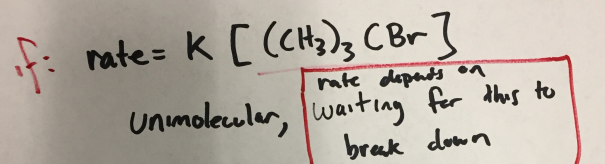 if: rate = K [(CH₃)₃ CBr]
Unimolecular,
rate depends on
waiting for this to
break down